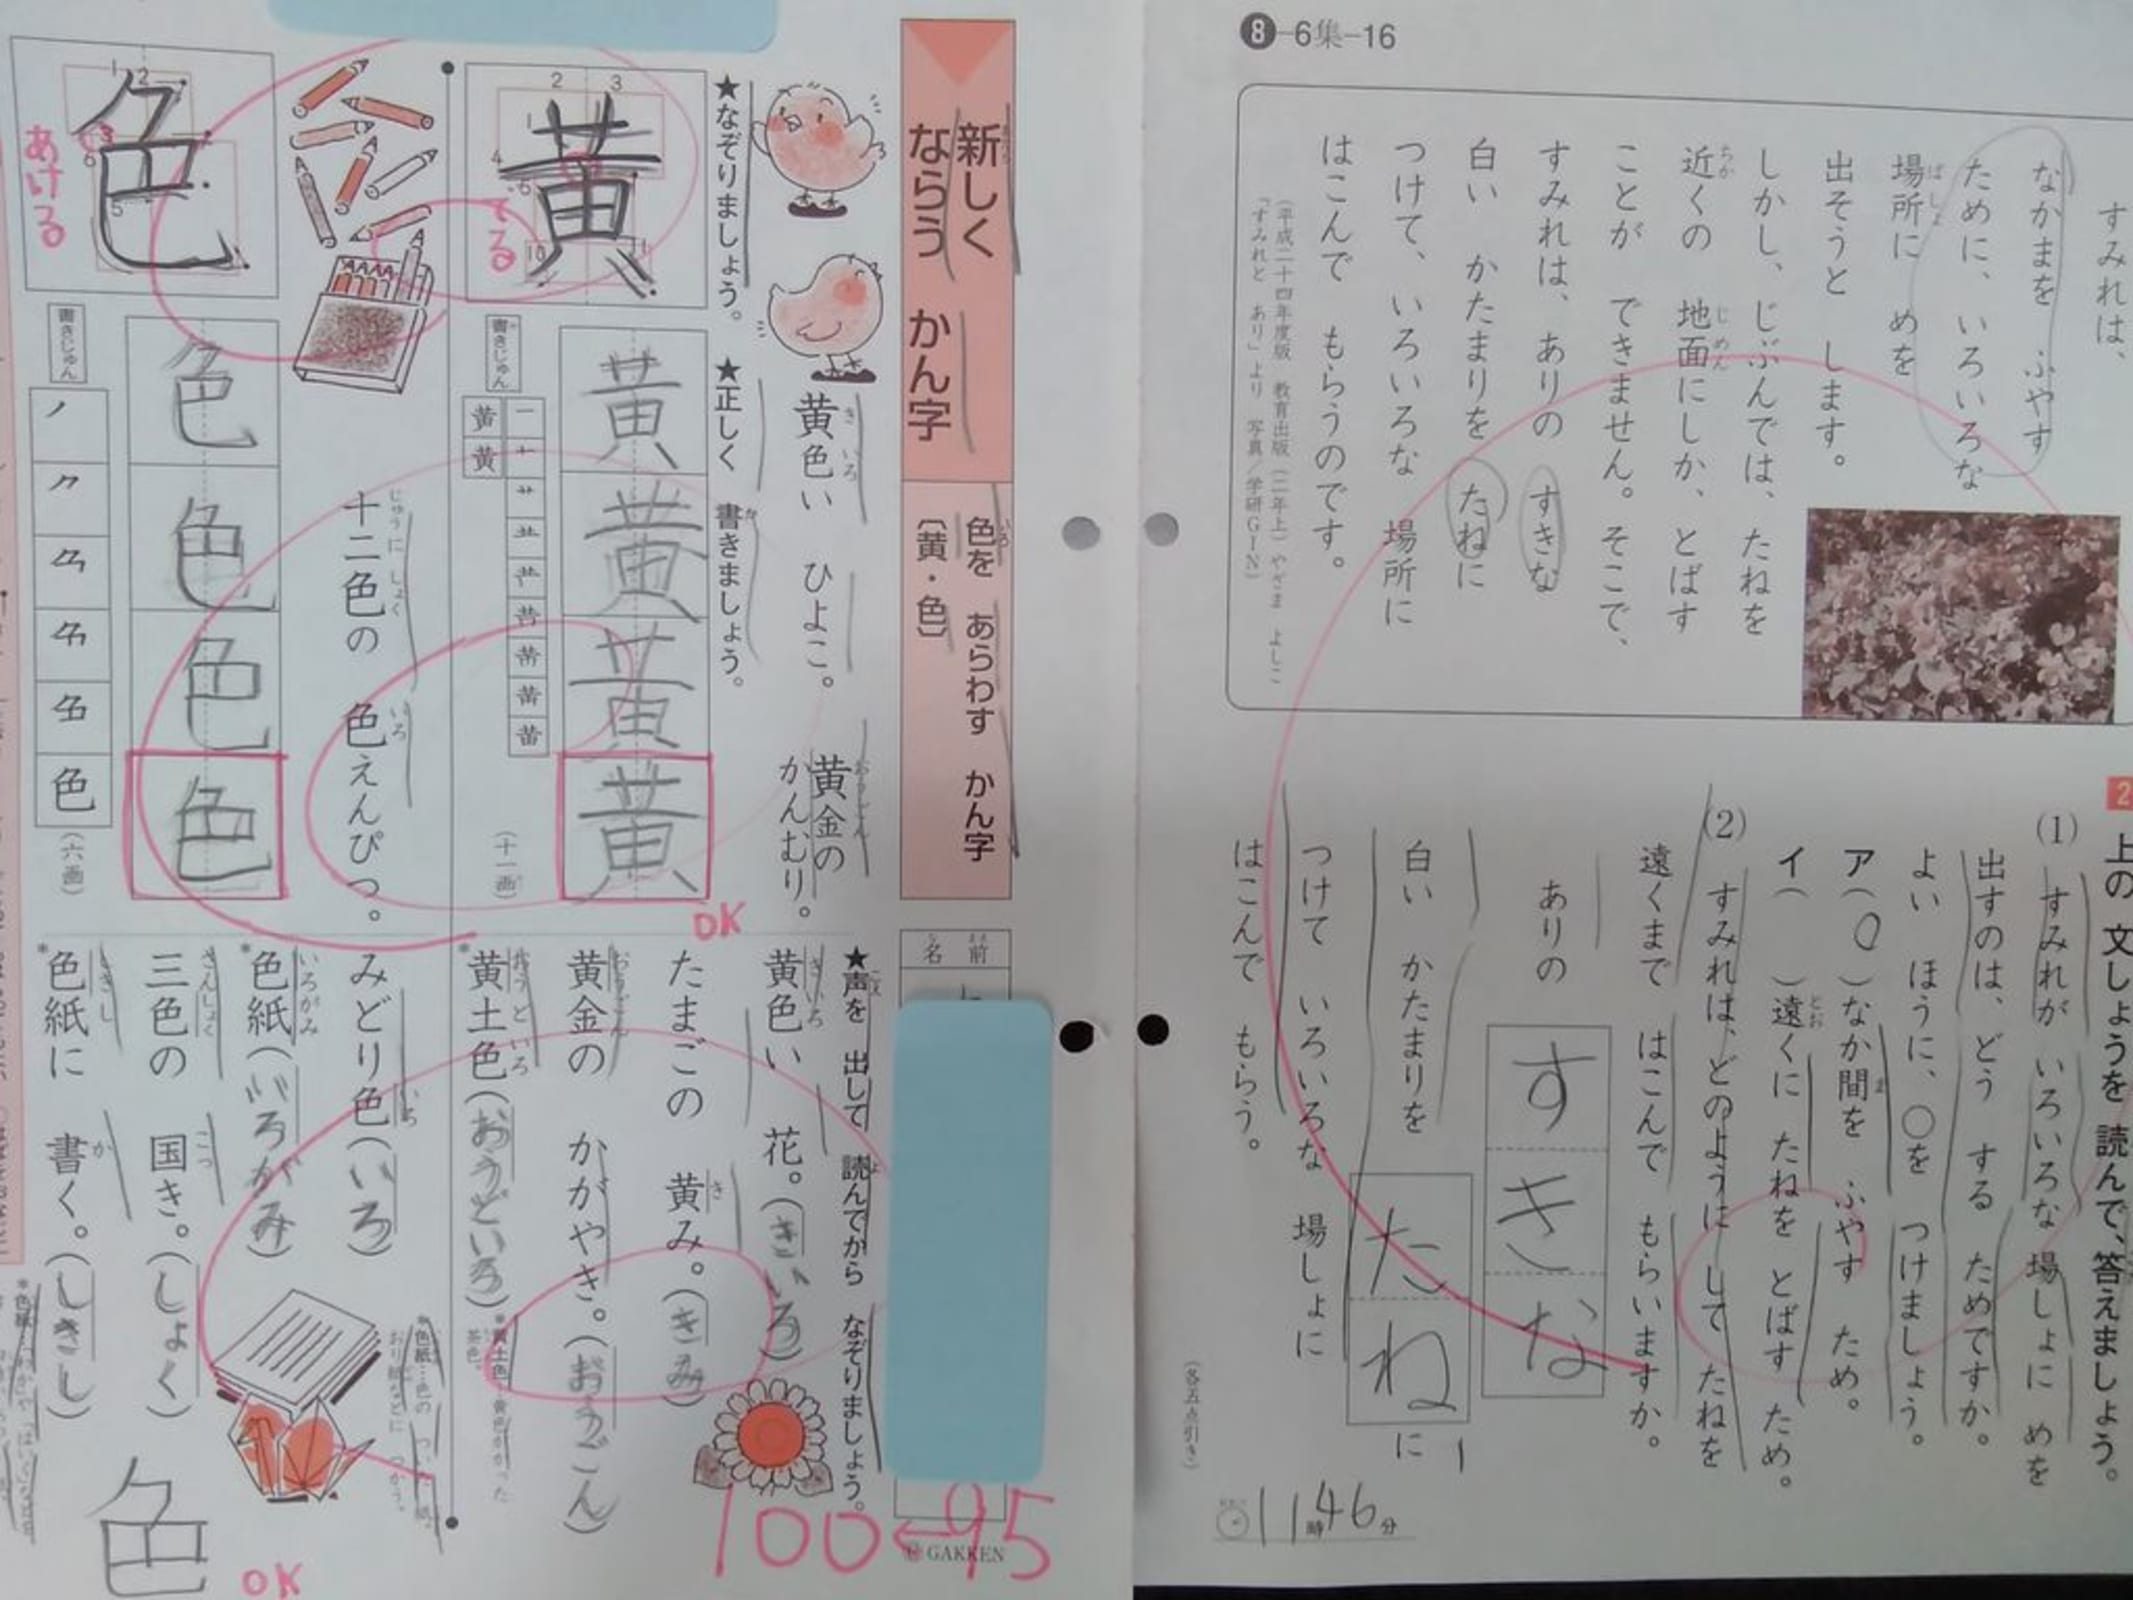 ❽-6集-16
すみれは、
なかまを ふやす
ために、いろいろな
場所に めを
出そうと します。
しかし、じぶんでは、たねを
近くの 地面にしか、とばす
ことが できません。そこで、
すみれは、ありの すきな
白い かたまりを たねに
つけて、いろいろな 場所に
はこんで もらうのです。
(平成二十四年度版 教育出版(二年上) やざま よしこ
「すみれと あり」より 写真/学研GIN)
2 上の 文しょうを 読んで、答えましょう。
(1) すみれが いろいろな 場しょに めを
出すのは、どう する ためですか。
よい ほうに、○を つけましょう。
ア(○)なか間を ふやす ため。
イ( )遠くに たねを とばす ため。
(2) すみれは、どのように して たねを
遠くまで はこんで もらいますか。
ありの すきな
白い かたまりを たねに
つけて いろいろな 場しょに
はこんで もらう。
(各五点引き)
11時46分
新しく
ならう かん字
色を あらわす かん字
〔黄・色〕
名前
★なぞりましょう。 ★正しく 書きましょう。
黄
でる
書きじゅん
(十一画)
黄 黄 黄 黄
OK
黄色い ひよこ。
黄金の
かんむり。
色
あける
書きじゅん
(六画)
色 色 色 色
十二色の 色えんぴつ。
★声を 出して 読んでから なぞりましょう。
黄色い 花。(きいろ)
たまごの 黄み。(きみ)
黄金の かがやき。(おうごん)
*黄土色(おうどいろ)
*黄土色…黄色がかった
茶色。
みどり色(いろ)
*色紙(いろがみ)
*色紙…色の ついた 紙。
おり紙などに つかう。
三色の 国き。(しょく)
*色紙に 書く。(しきし)
色
OK
100←95
GAKKEN